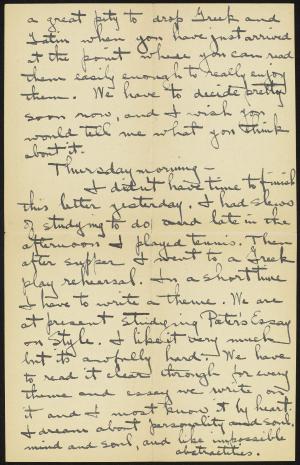 a great pity to drop Greek and
Latin when you have just arrived
at the point where you can read
them easily enough to really enjoy
them. We have to decide pretty
soon now, and I wish you
would tell me what you think
about it.
Thursday morning—
I didn't have time to finish
this letter yesterday. I had slews
of studying to do and late in the
afternoon I played tennis. Then
after supper I went to a Greek
play rehearsal. In a short time
I have to write a theme. We are
at present studying Pater's Essay
on Style. I like it very much
but its awfully hard. We have
to read it clear through for every
theme and essay we write on
it and I most know it by heart.
I dream about personality and soul,
mind and soul, and like impossible
abstractities.